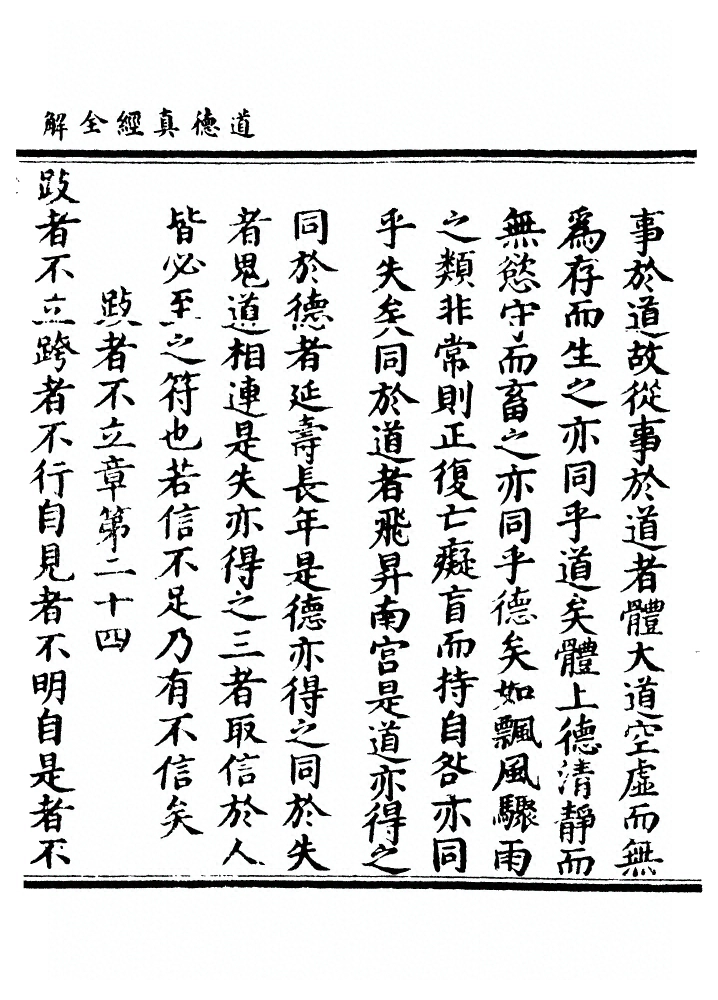 道德真經全解
事於道故從事於道者體大道空虛而無
爲存而生之亦同乎道矣體上德清靜而
無慾守而畜之亦同乎德矣如飄風驟雨
之類非常則正復亡癡盲而持自咎亦同
乎失矣同於道者飛昇南宮是道亦得之
同於德者延壽長年是德亦得之同於失
者鬼道相連是失亦得之三者取信於人
皆必至之符也若信不足乃有不信矣
跂者不立章第二十四
跂者不立跨者不行自見者不明自是者不